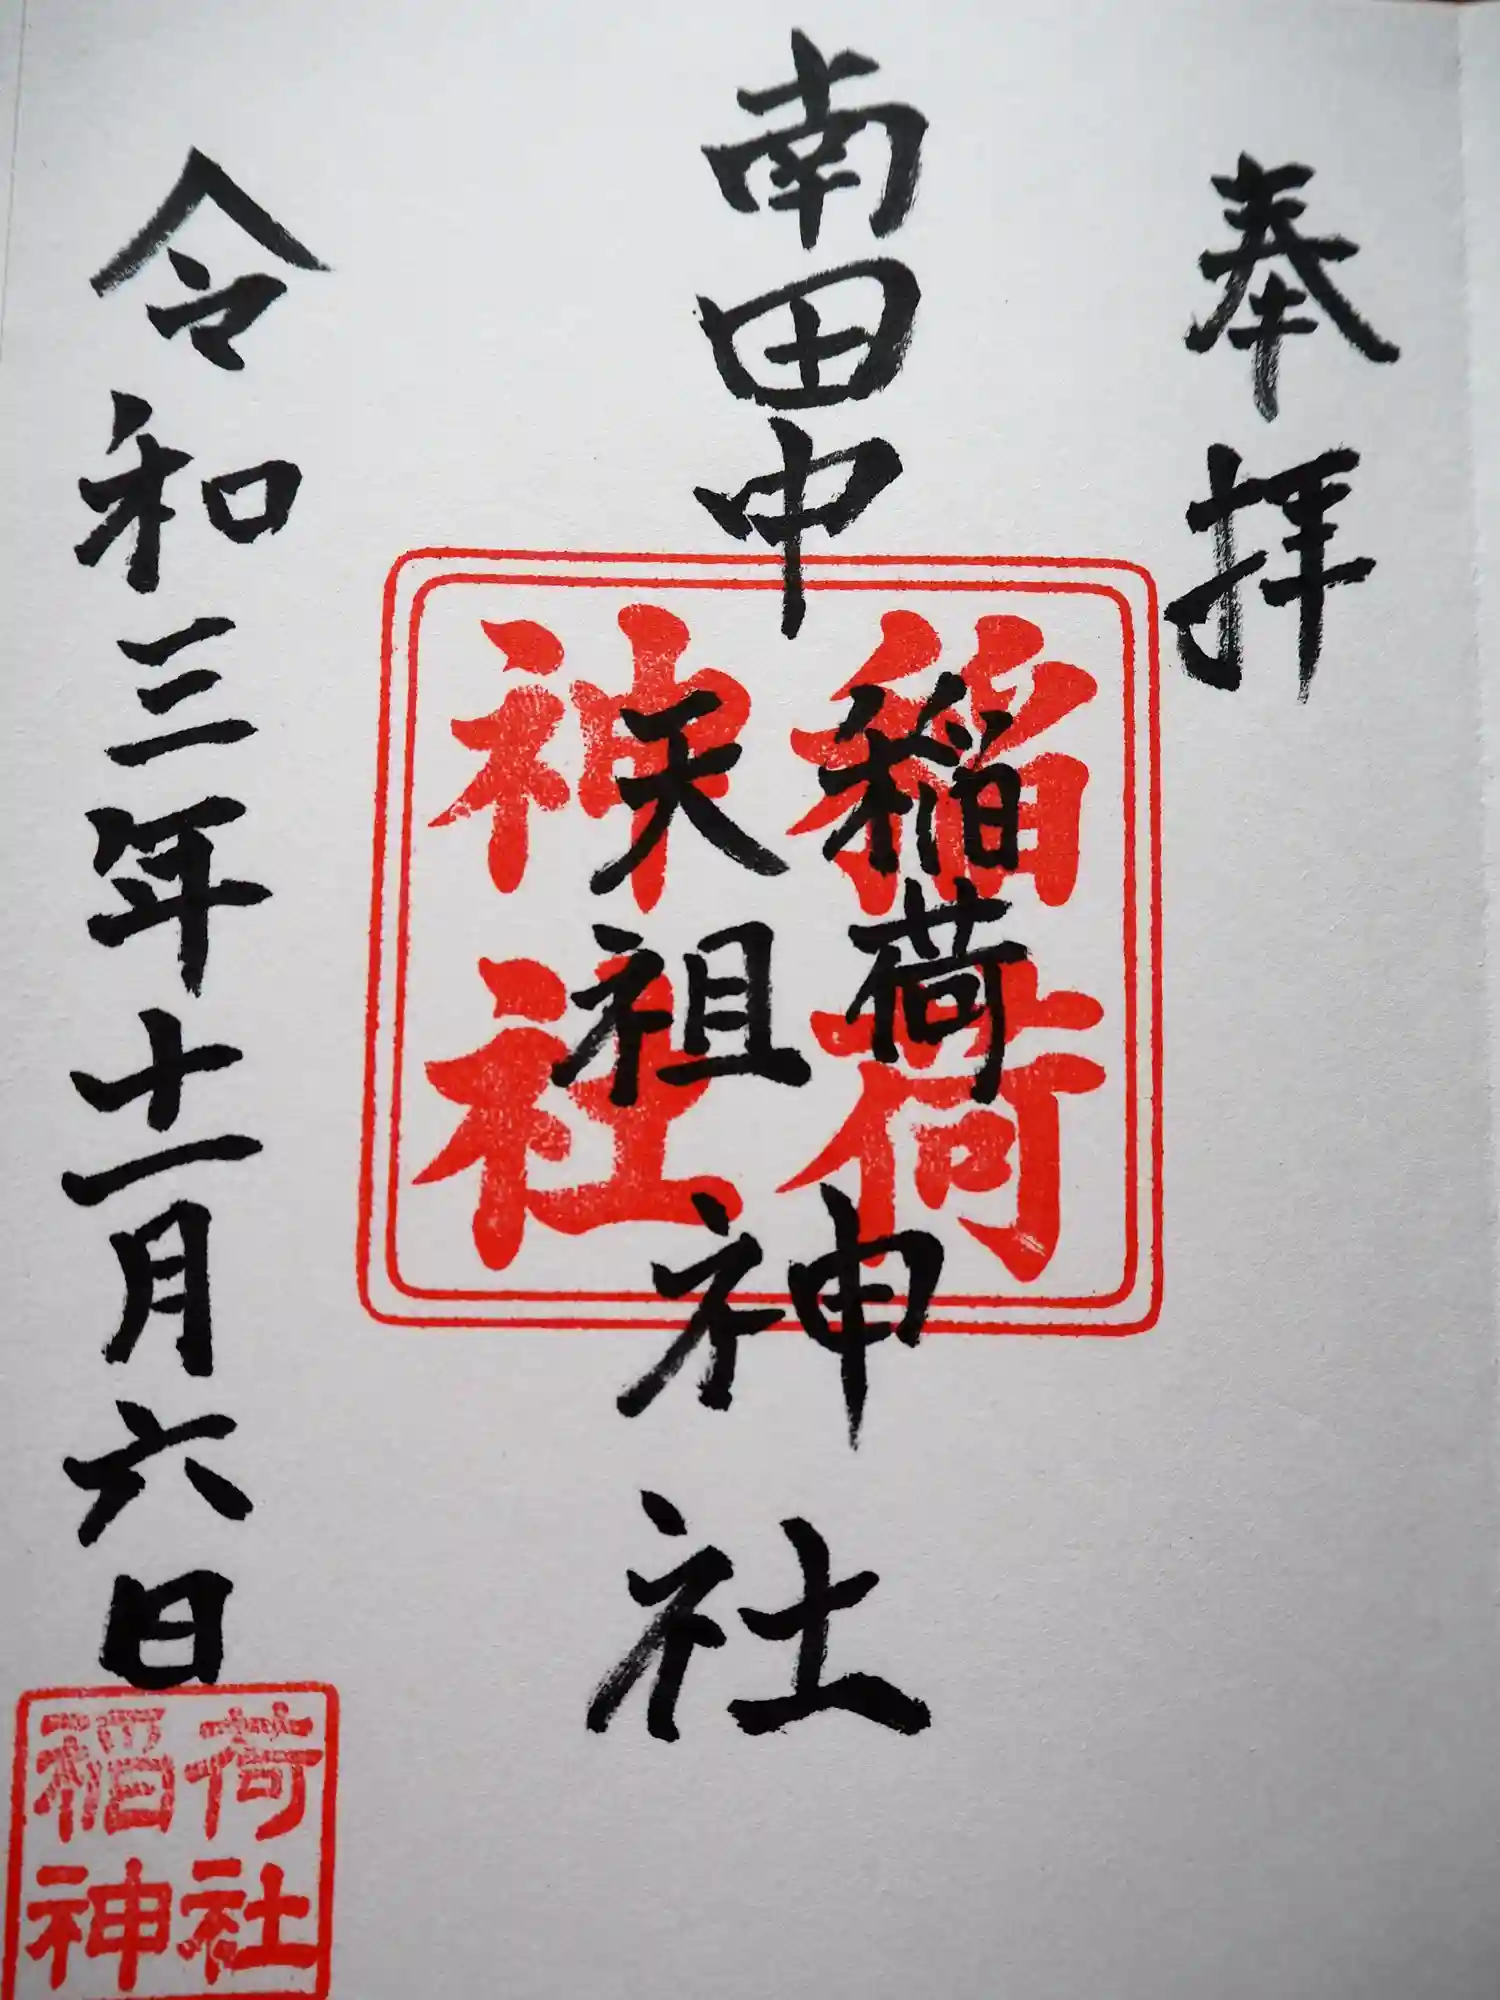 奉拝
南田中
稲荷
天祖
神社
令和三年十一月六日
稲荷
神社
稲荷
神社